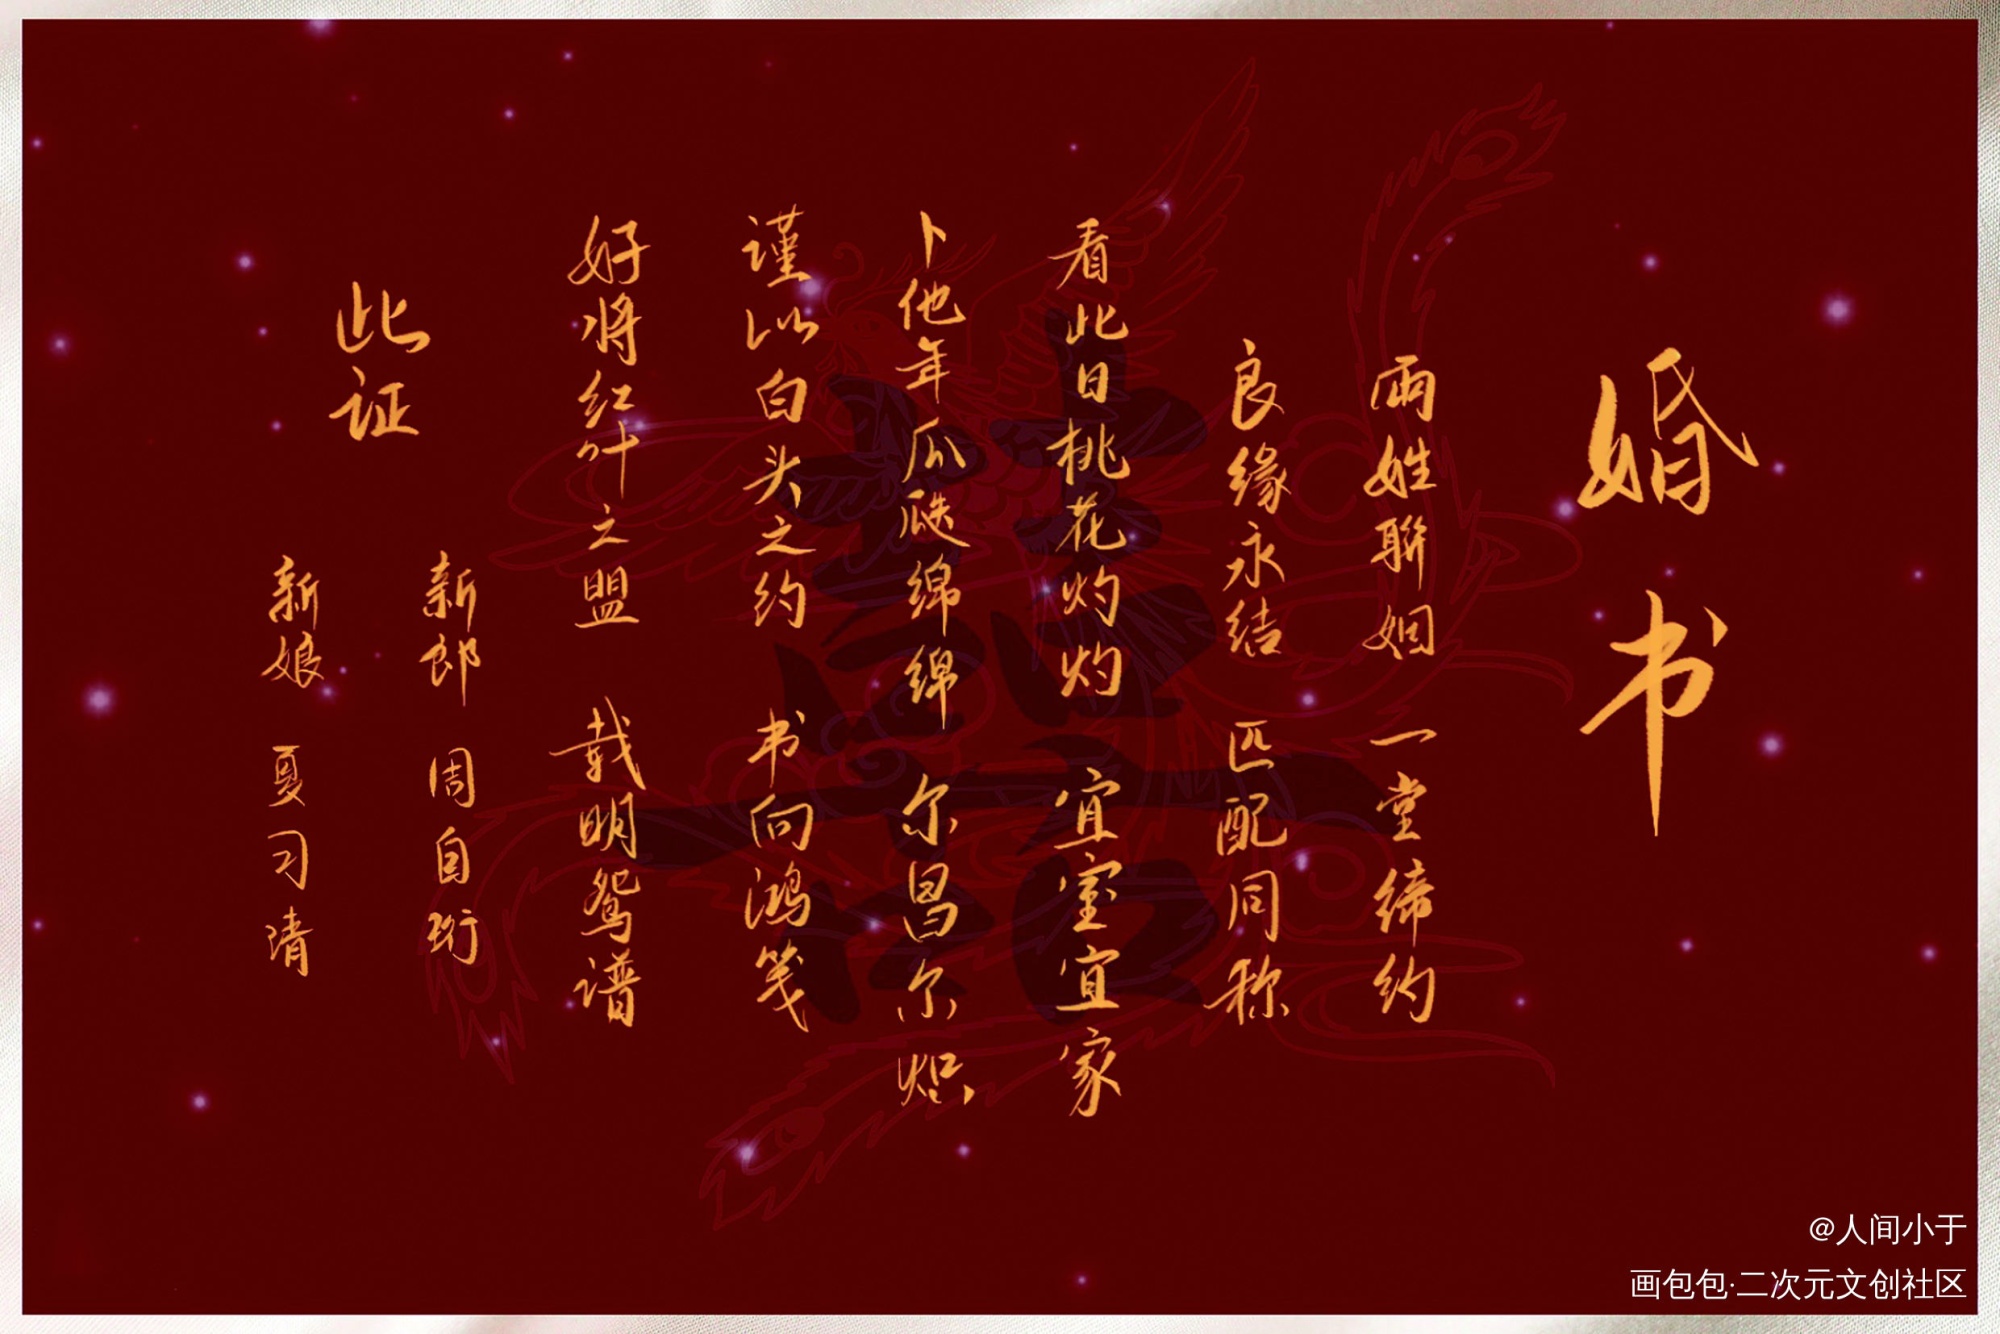 婚书
兩姓聯姻 一堂缔约
良缘永结 匹配同称
看此日桃花灼灼 宜室宜家
卜他年瓜瓞绵绵 尔昌尔炽
谨以白头之约 书向鸿笺
好将红叶之盟 载明鸳谱
此证
新郎 周自珩
新娘 夏习清
@人间小于
画包包·二次元文创社区